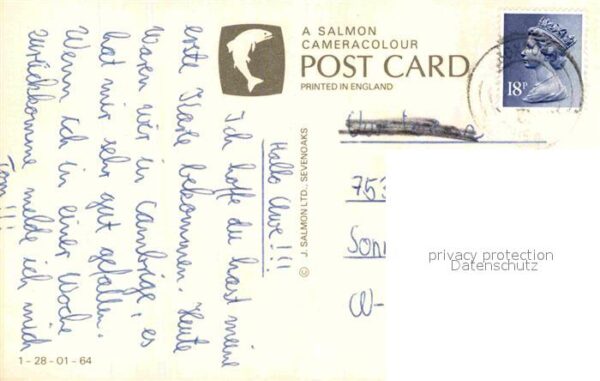 A SALMON
CAMERACOLOUR
POST CARD
PRINTED IN ENGLAND
18P
© J. SALMON LTD., SEVENOAKS
Hallo Uwe!!!
Ich hoffe du hast meine
erste Karte bekommen. Heute
waren wir in Cambrige, es
hat mir sehr gut gefallen.
Wenn ich in einer Woche
zurückkomme melde ich mich
Tom!!!
753
Son
W-
privacy protection
Datenschutz
1 - 28 - 01 - 64